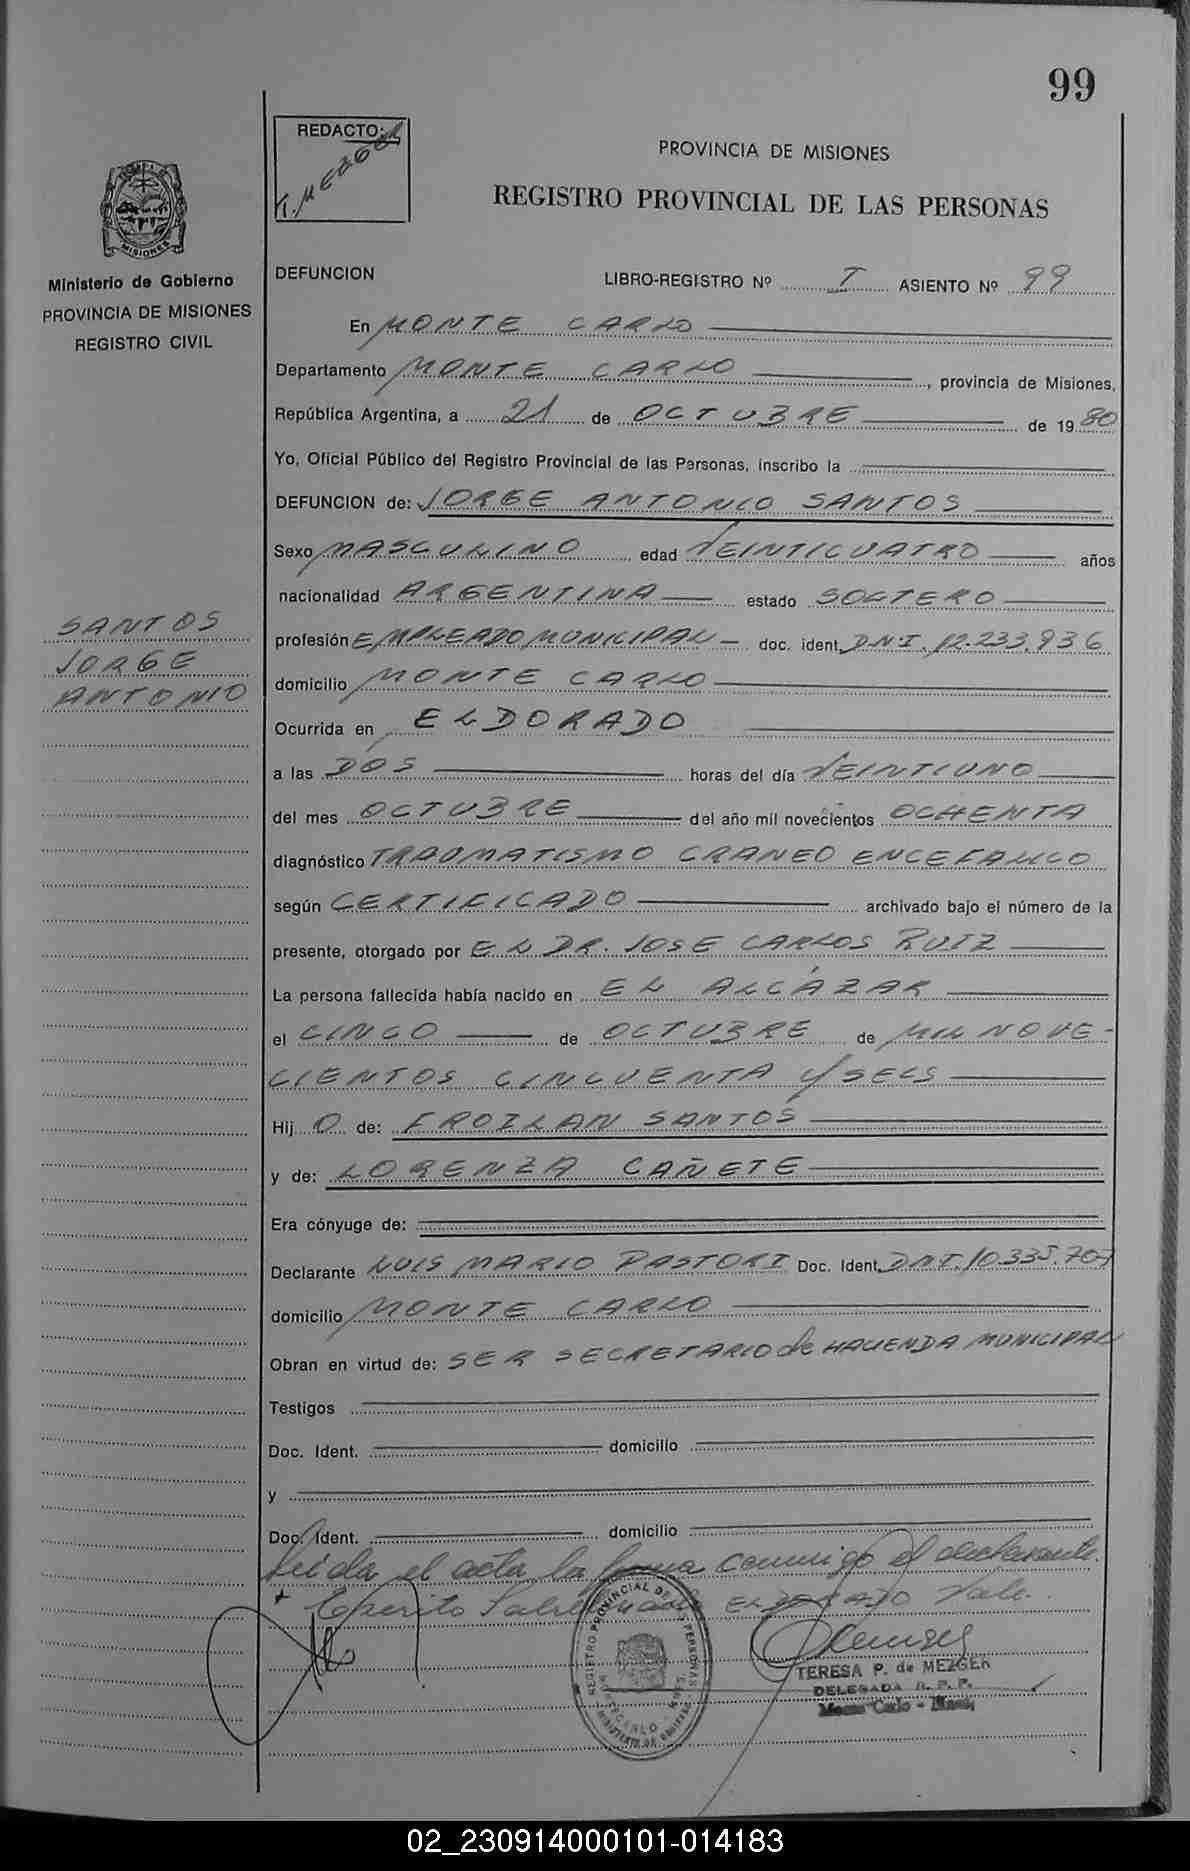 99
REDACTO:
T. MEZGER
PROVINCIA DE MISIONES
REGISTRO PROVINCIAL DE LAS PERSONAS
MISIONES
Ministerio de Gobierno
PROVINCIA DE MISIONES
REGISTRO CIVIL
DEFUNCION LIBRO-REGISTRO Nº I ASIENTO Nº 99
En MONTE CARLO
Departamento MONTE CARLO, provincia de Misiones,
República Argentina, a 21 de OCTUBRE de 1980
Yo, Oficial Público del Registro Provincial de las Personas, inscribo la
DEFUNCION de: JORGE ANTONIO SANTOS
Sexo MASCULINO edad VEINTICUATRO años
nacionalidad ARGENTINA estado SOLTERO
SANTOS
JORGE
ANTONIO
profesión EMPLEADO MUNICIPAL doc. ident. DNI. 12.233.936
domicilio MONTE CARLO
Ocurrida en ELDORADO
a las DOS horas del día VEINTIUNO
del mes OCTUBRE del año mil novecientos OCHENTA
diagnóstico TRAUMATISMO CRANEO ENCEFALICO
según CERTIFICADO archivado bajo el número de la
presente, otorgado por EL DR. JOSE CARLOS RUIZ
La persona fallecida había nacido en EL ALCÁZAR
el CINCO de OCTUBRE de MIL NOVE-
CIENTOS CINCUENTA Y SEIS
Hij O de: FROILAN SANTOS
y de: LORENZA CAÑETE
Era cónyuge de:
Declarante LUIS MARIO PASTORI Doc. Ident. DNI. 10.335.707
domicilio MONTE CARLO
Obran en virtud de: SER SECRETARIO de HACIENDA MUNICIPAL
Testigos
Doc. Ident. domicilio
y
Doc. Ident. domicilio
Leida el acta la firma conmigo el declarante.
ELDORADO Vale.
REGISTRO PROVINCIAL DE LAS PERSONAS
TERESA P. de MEZGER
DELEGADA R. P. P.
Monte Carlo - Mnes.
02_230914000101-014183